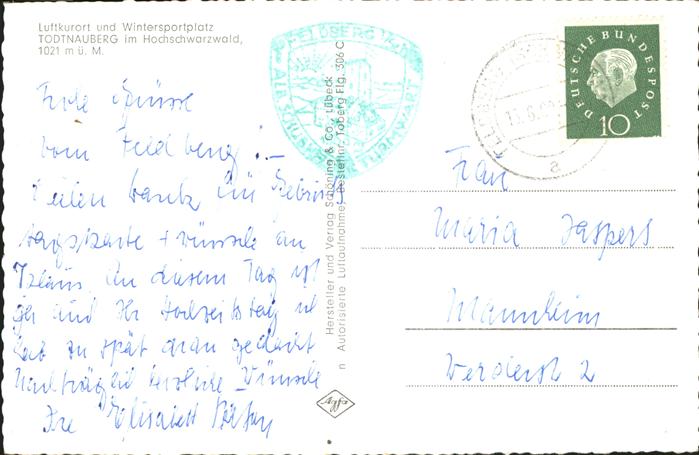 Luftkurort und Wintersportplatz
TODTNAUBERG im Hochschwarzwald,
1021 m ü. M.
Viele Grüsse
vom Feldberg. –
Vielen Dank für Geburts
tagskarte + wünsche an
An diesem Tag ist
ja auch Ihr Hochzeitstag
hab zu spät dran gedacht
Nachträglich herzliche Wünsche
Ihre Elisabeth
Hersteller und Verlag Schöning & Co., Lübeck
Autorisierte Luftaufnahme Bestellnr. Toberg Flg. 306 C
Agfa
FELDBERG
DEUTSCHE BUNDESPOST
10
a
Frau
Maria Jaspers
Mannheim
Werderstr 2